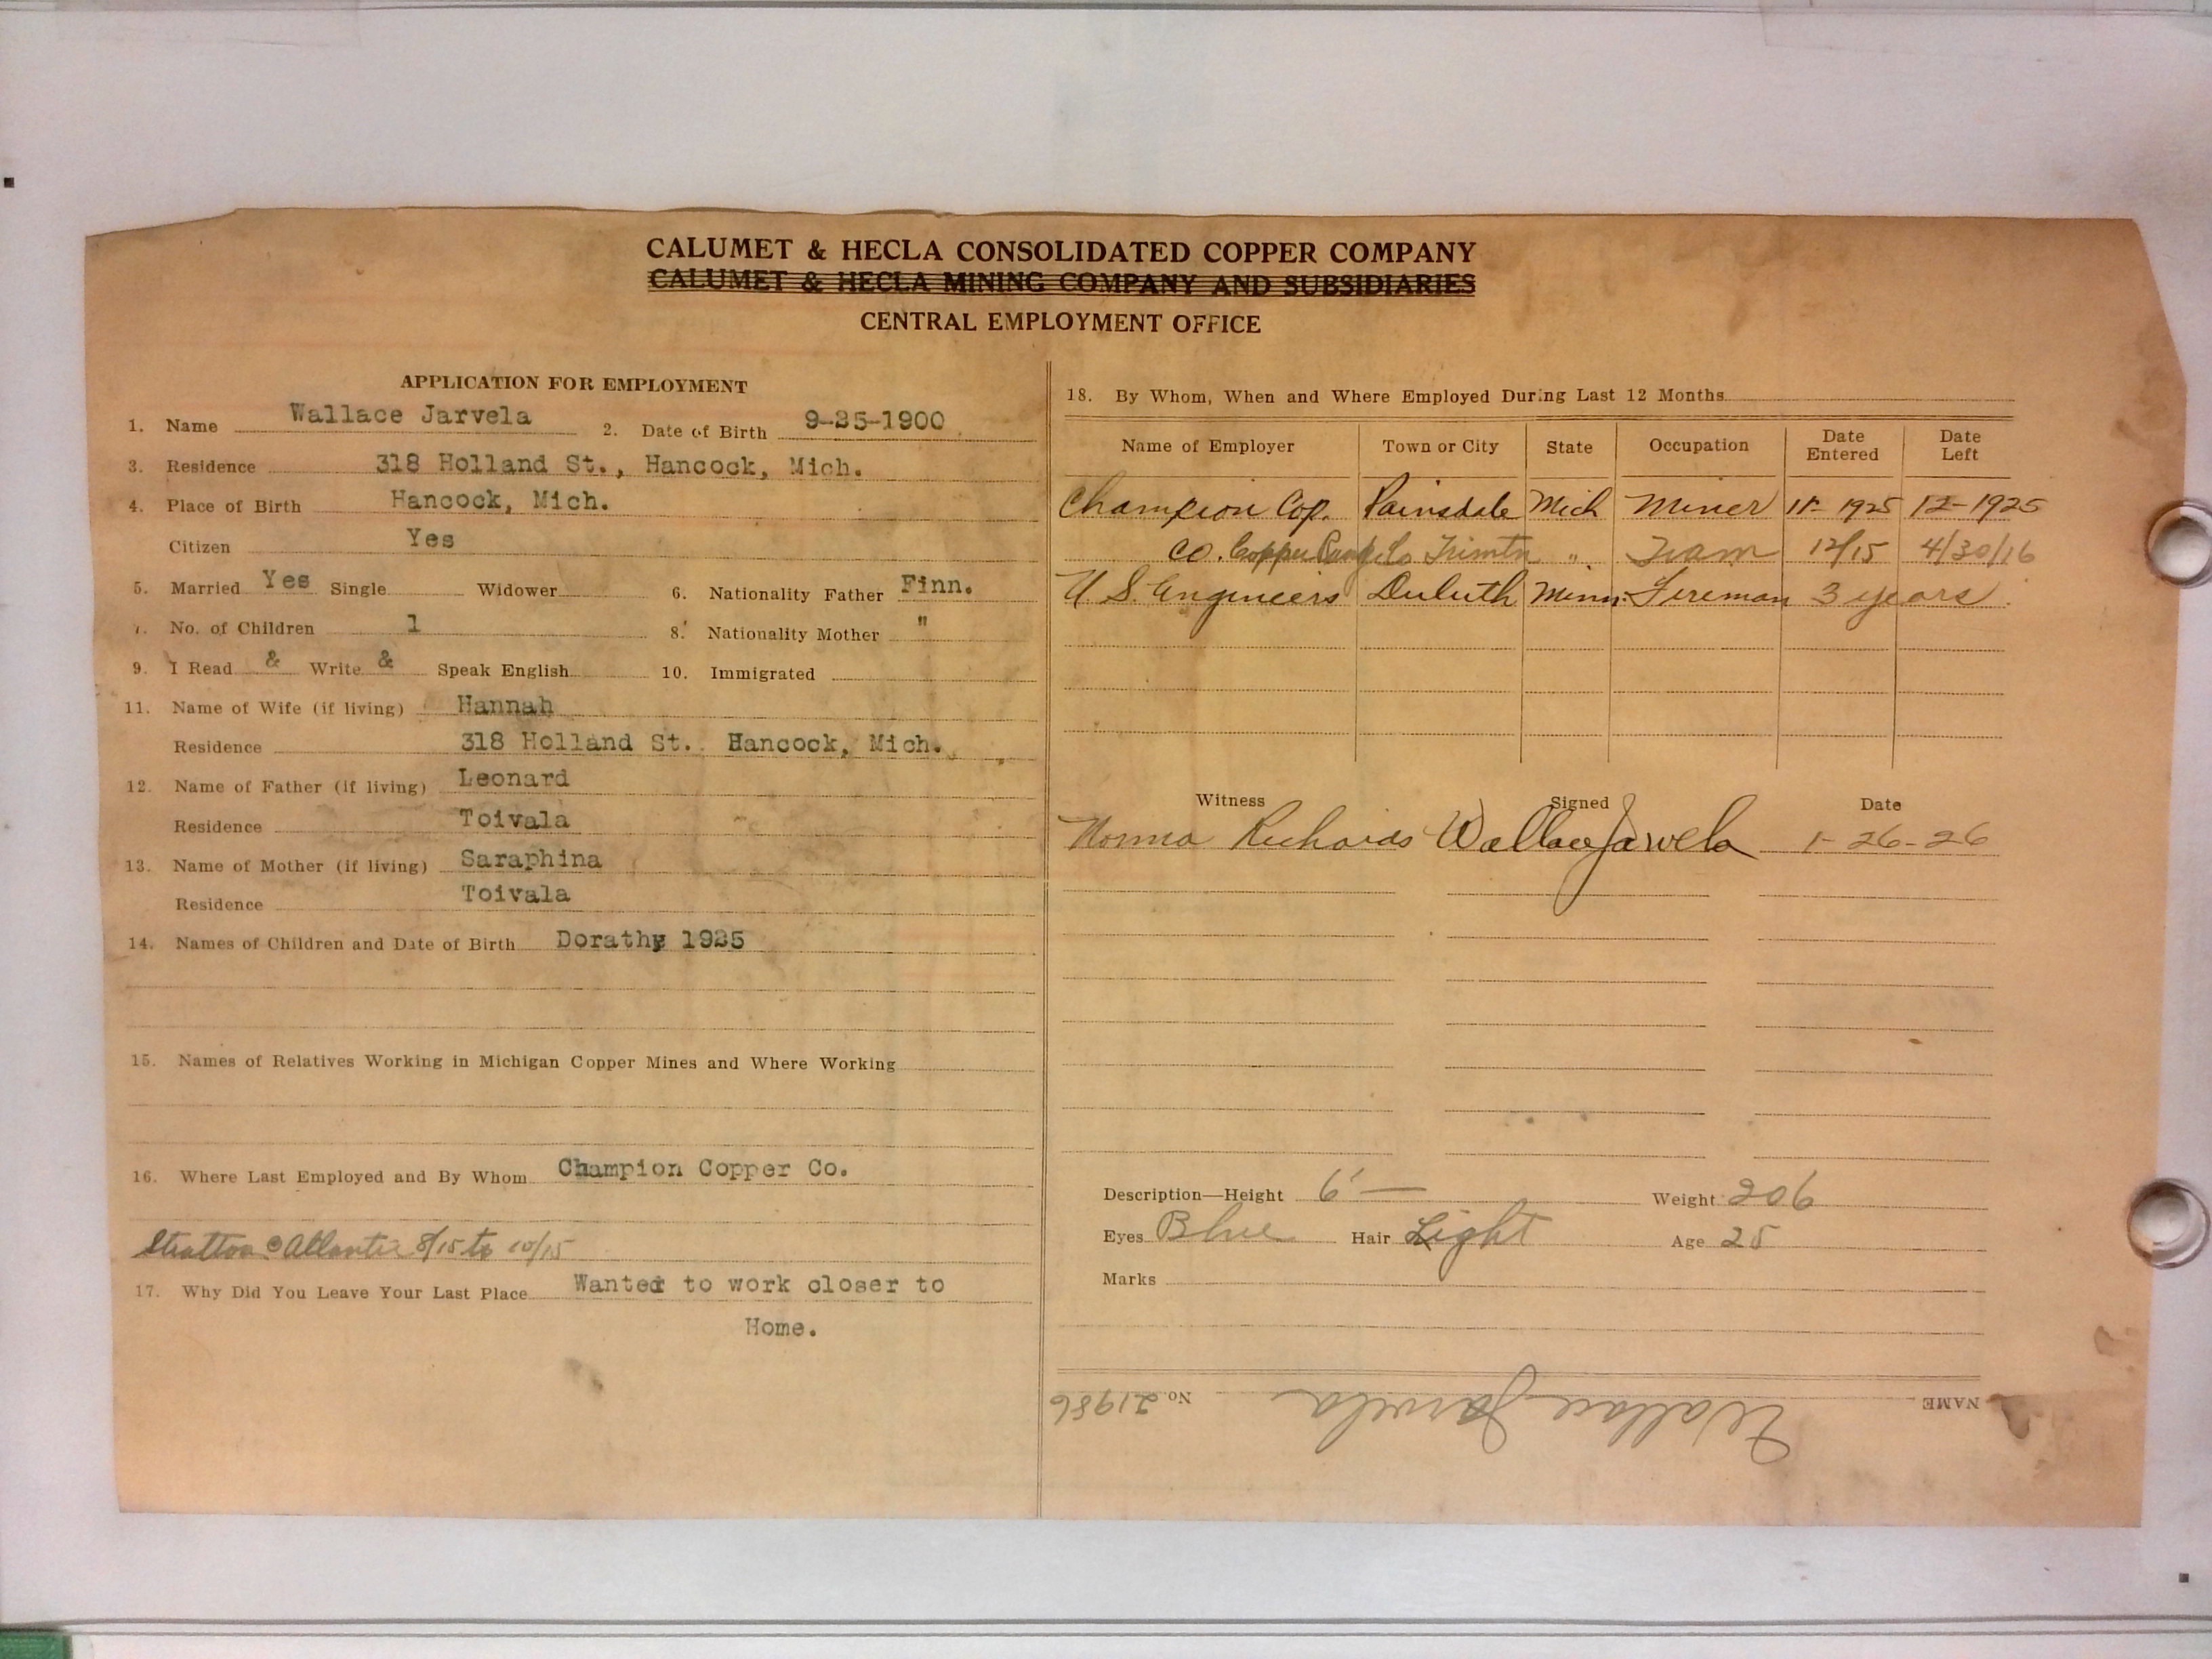 CALUMET & HECLA CONSOLIDATED COPPER COMPANY
CALUMET & HECLA MINING COMPANY AND SUBSIDIARIES
CENTRAL EMPLOYMENT OFFICE
APPLICATION FOR EMPLOYMENT
1. Name Wallace Jarvela 2. Date of Birth 9-25-1900
3. Residence 318 Holland St., Hancock, Mich.
4. Place of Birth Hancock, Mich.
Citizen Yes
5. Married Yes Single Widower 6. Nationality Father Finn.
7. No. of Children 1 8. Nationality Mother "
9. I Read & Write & Speak English 10. Immigrated
11. Name of Wife (if living) Hannah
Residence 318 Holland St. Hancock, Mich.
12. Name of Father (if living) Leonard
Residence Toivala
13. Name of Mother (if living) Saraphina
Residence Toivala
14. Names of Children and Date of Birth Dorathy 1925
15. Names of Relatives Working in Michigan Copper Mines and Where Working
16. Where Last Employed and By Whom Champion Copper Co.
Stratton @ Atlantic 8/15 to 10/15
17. Why Did You Leave Your Last Place Wanted to work closer to
Home.
18. By Whom, When and Where Employed During Last 12 Months
Name of Employer Town or City State Occupation Date Entered Date Left
Champion Cop. Painsdale Mich Miner 11-1925 12-1925
Co. Copper Range Co Trimtn " Tram 12/15 4/30/16
U S. Engineers Duluth Minn. Fireman 3 years.
Witness Signed Date
Norma Richards Wallace Jarvela 1-26-26
Description—Height 6'— Weight 206
Eyes Blue Hair Light Age 25
Marks
NAME Wallace Jarvela No. 21986